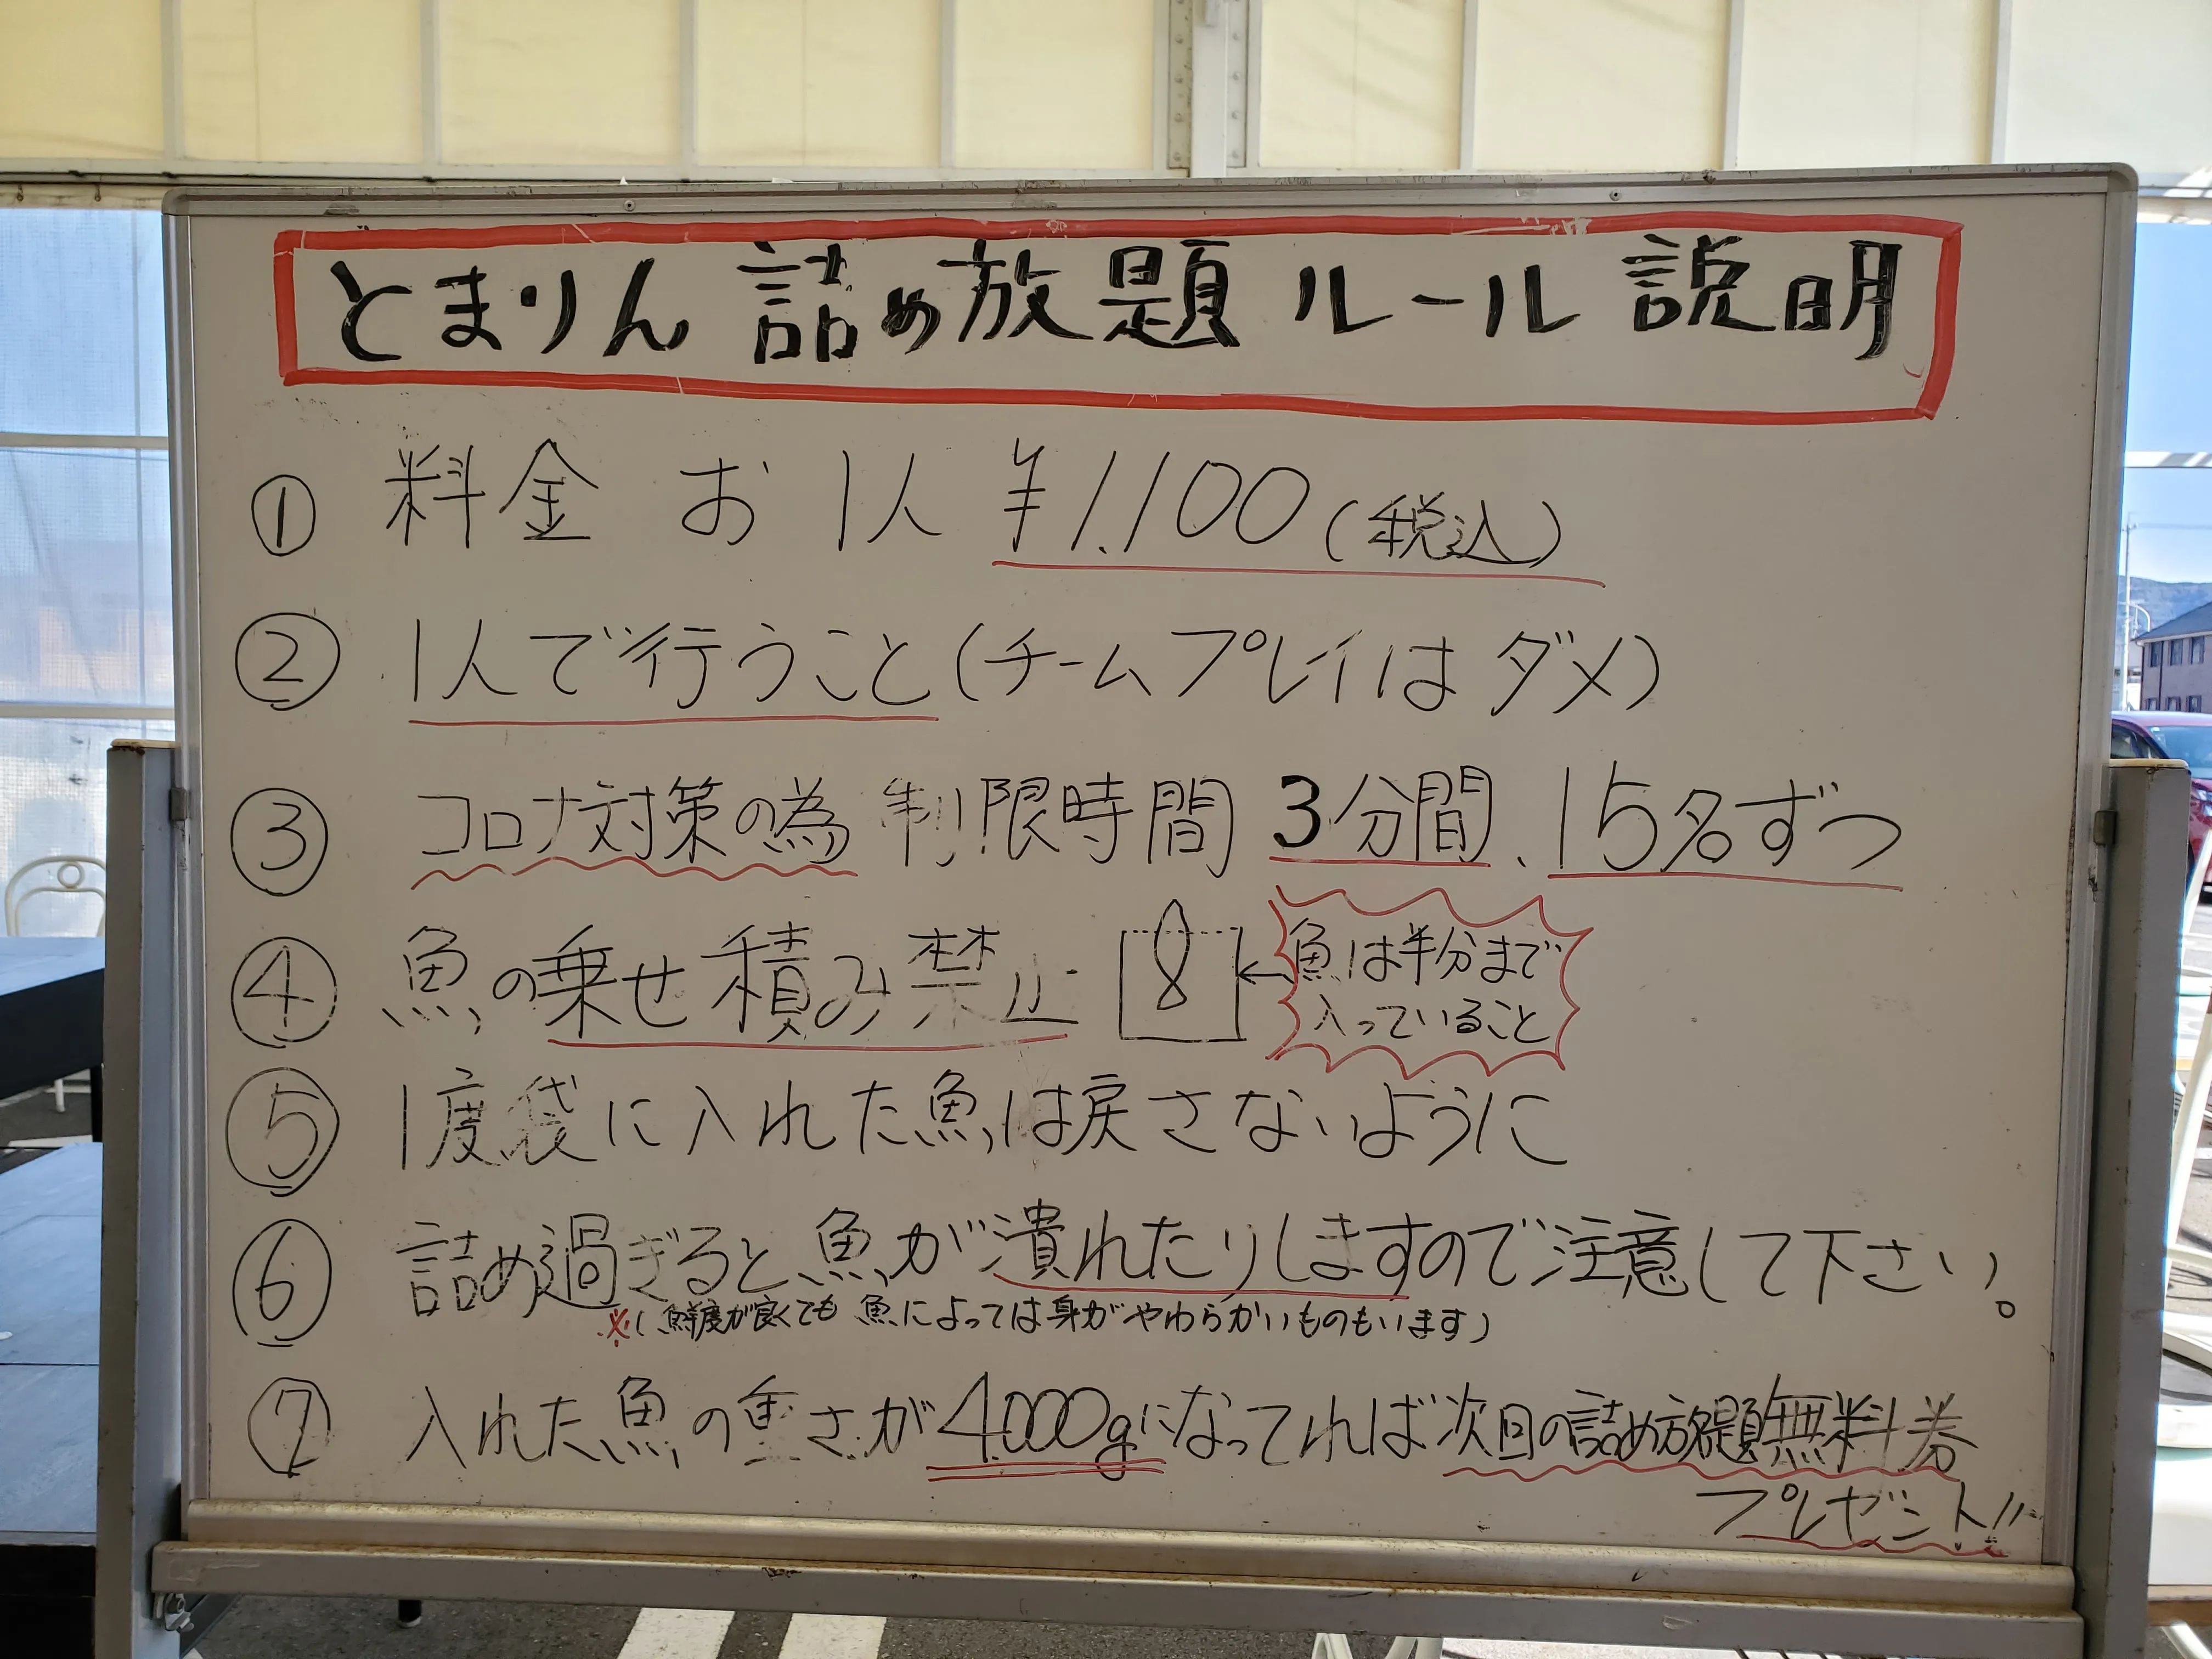 とまりん 詰め放題 ルール 説明
① 料金 お1人 ¥1.100(税込)
② 1人で行うこと(チームプレイはダメ)
③ コロナ対策の為 制限時間 3分間、15名ずつ
④ 魚の乗せ積み禁止 ←魚は半分まで
入っていること
⑤ 1度袋に入れた魚は戻さないように
⑥ 詰め過ぎると魚が潰れたりしますので注意して下さい。
※(鮮度が良くても 魚によっては身がやわらかいものもいます)
⑦ 入れた魚の重さが4.000gになってれば次回の詰め放題無料券
プレゼント!!